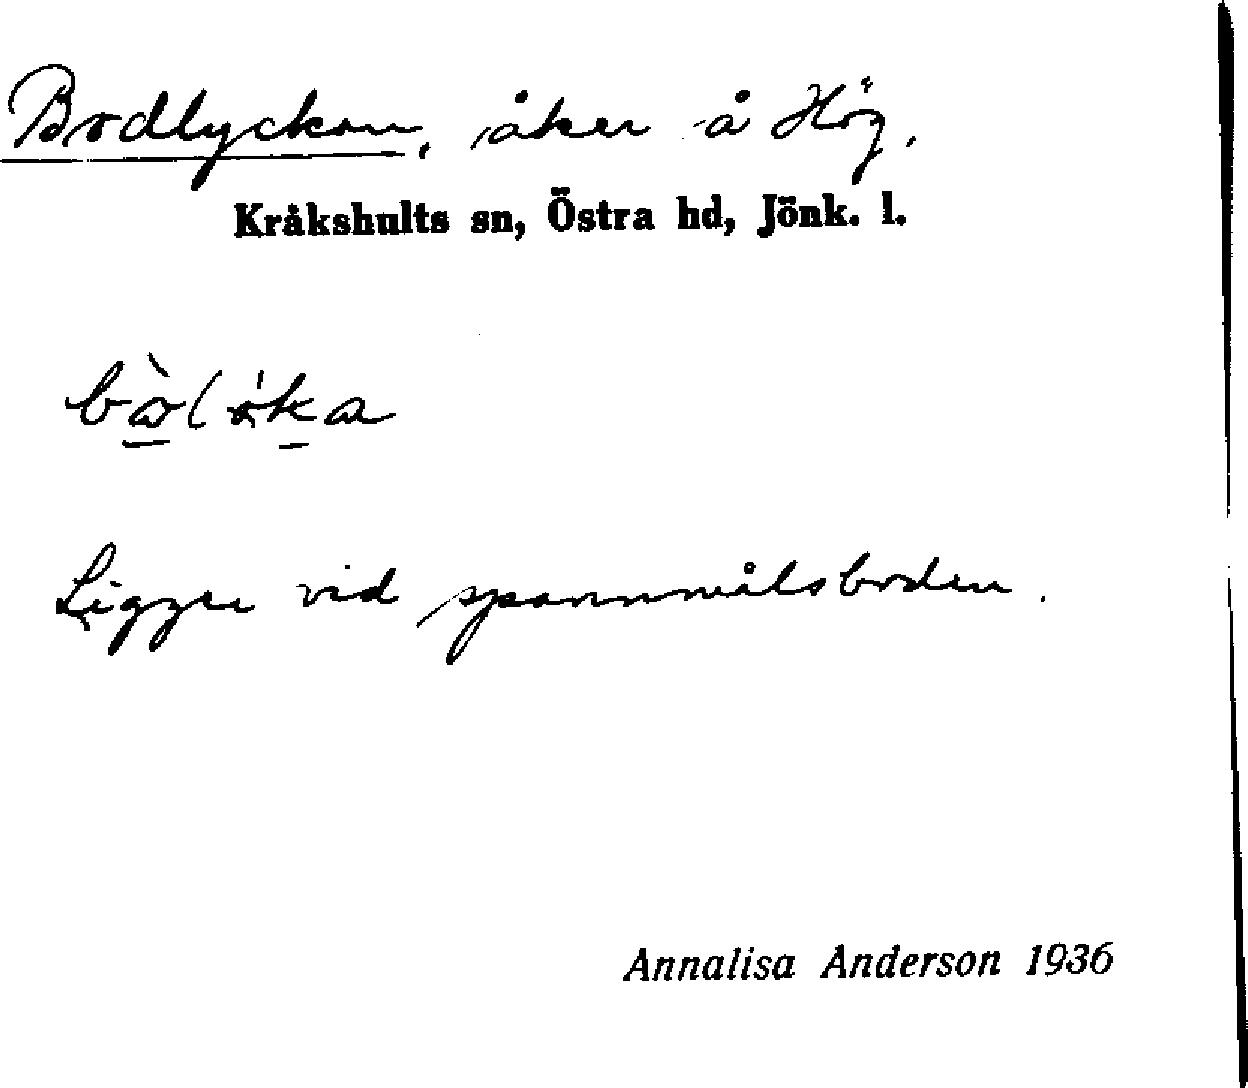 Bodlyckan, åker å Hög,
Kråkshults sn, Östra hd, Jönk. l.
Ligger vid spannmålsboden.
Annalisa Anderson 1936